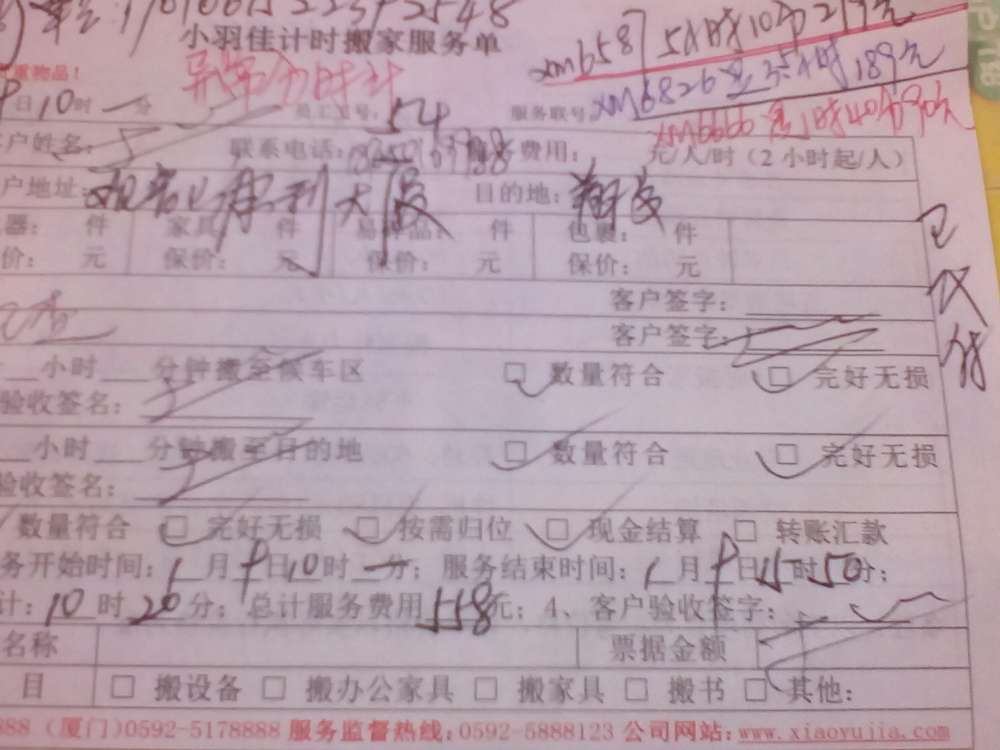 小羽佳计时搬家服务单
重物品！
xm6587 5小时10分 279元
xm6826 3.5小时 189元
日10时一分 员工工号：54 服务联号：
客户姓名： 联系电话： 费用： 元/人/时（2小时起/人）
户地址： 大厦 目的地：翔安
器： 件 家具 件 易碎品： 件 包裹： 件
价： 元 保价： 元 保价： 元 保价： 元
已收钱
客户签字：
客户签字：
小时 分钟搬至候车区 □ 数量符合 □ 完好无损
验收签名：
小时 分钟搬至目的地 □ 数量符合 □ 完好无损
验收签名：
数量符合 □ 完好无损 □ 按需归位 □ 现金结算 □ 转账汇款
务开始时间：1月9日10时一分；服务结束时间：1月9日15时50分；
计：10时20分；总计服务费用558元；4、客户验收签字：
名称 票据金额
目 □ 搬设备 □ 搬办公家具 □ 搬家具 □ 搬书 □ 其他：
888（厦门）0592-5178888 服务监督热线：0592-5888123 公司网站：www.xiaoyujia.com